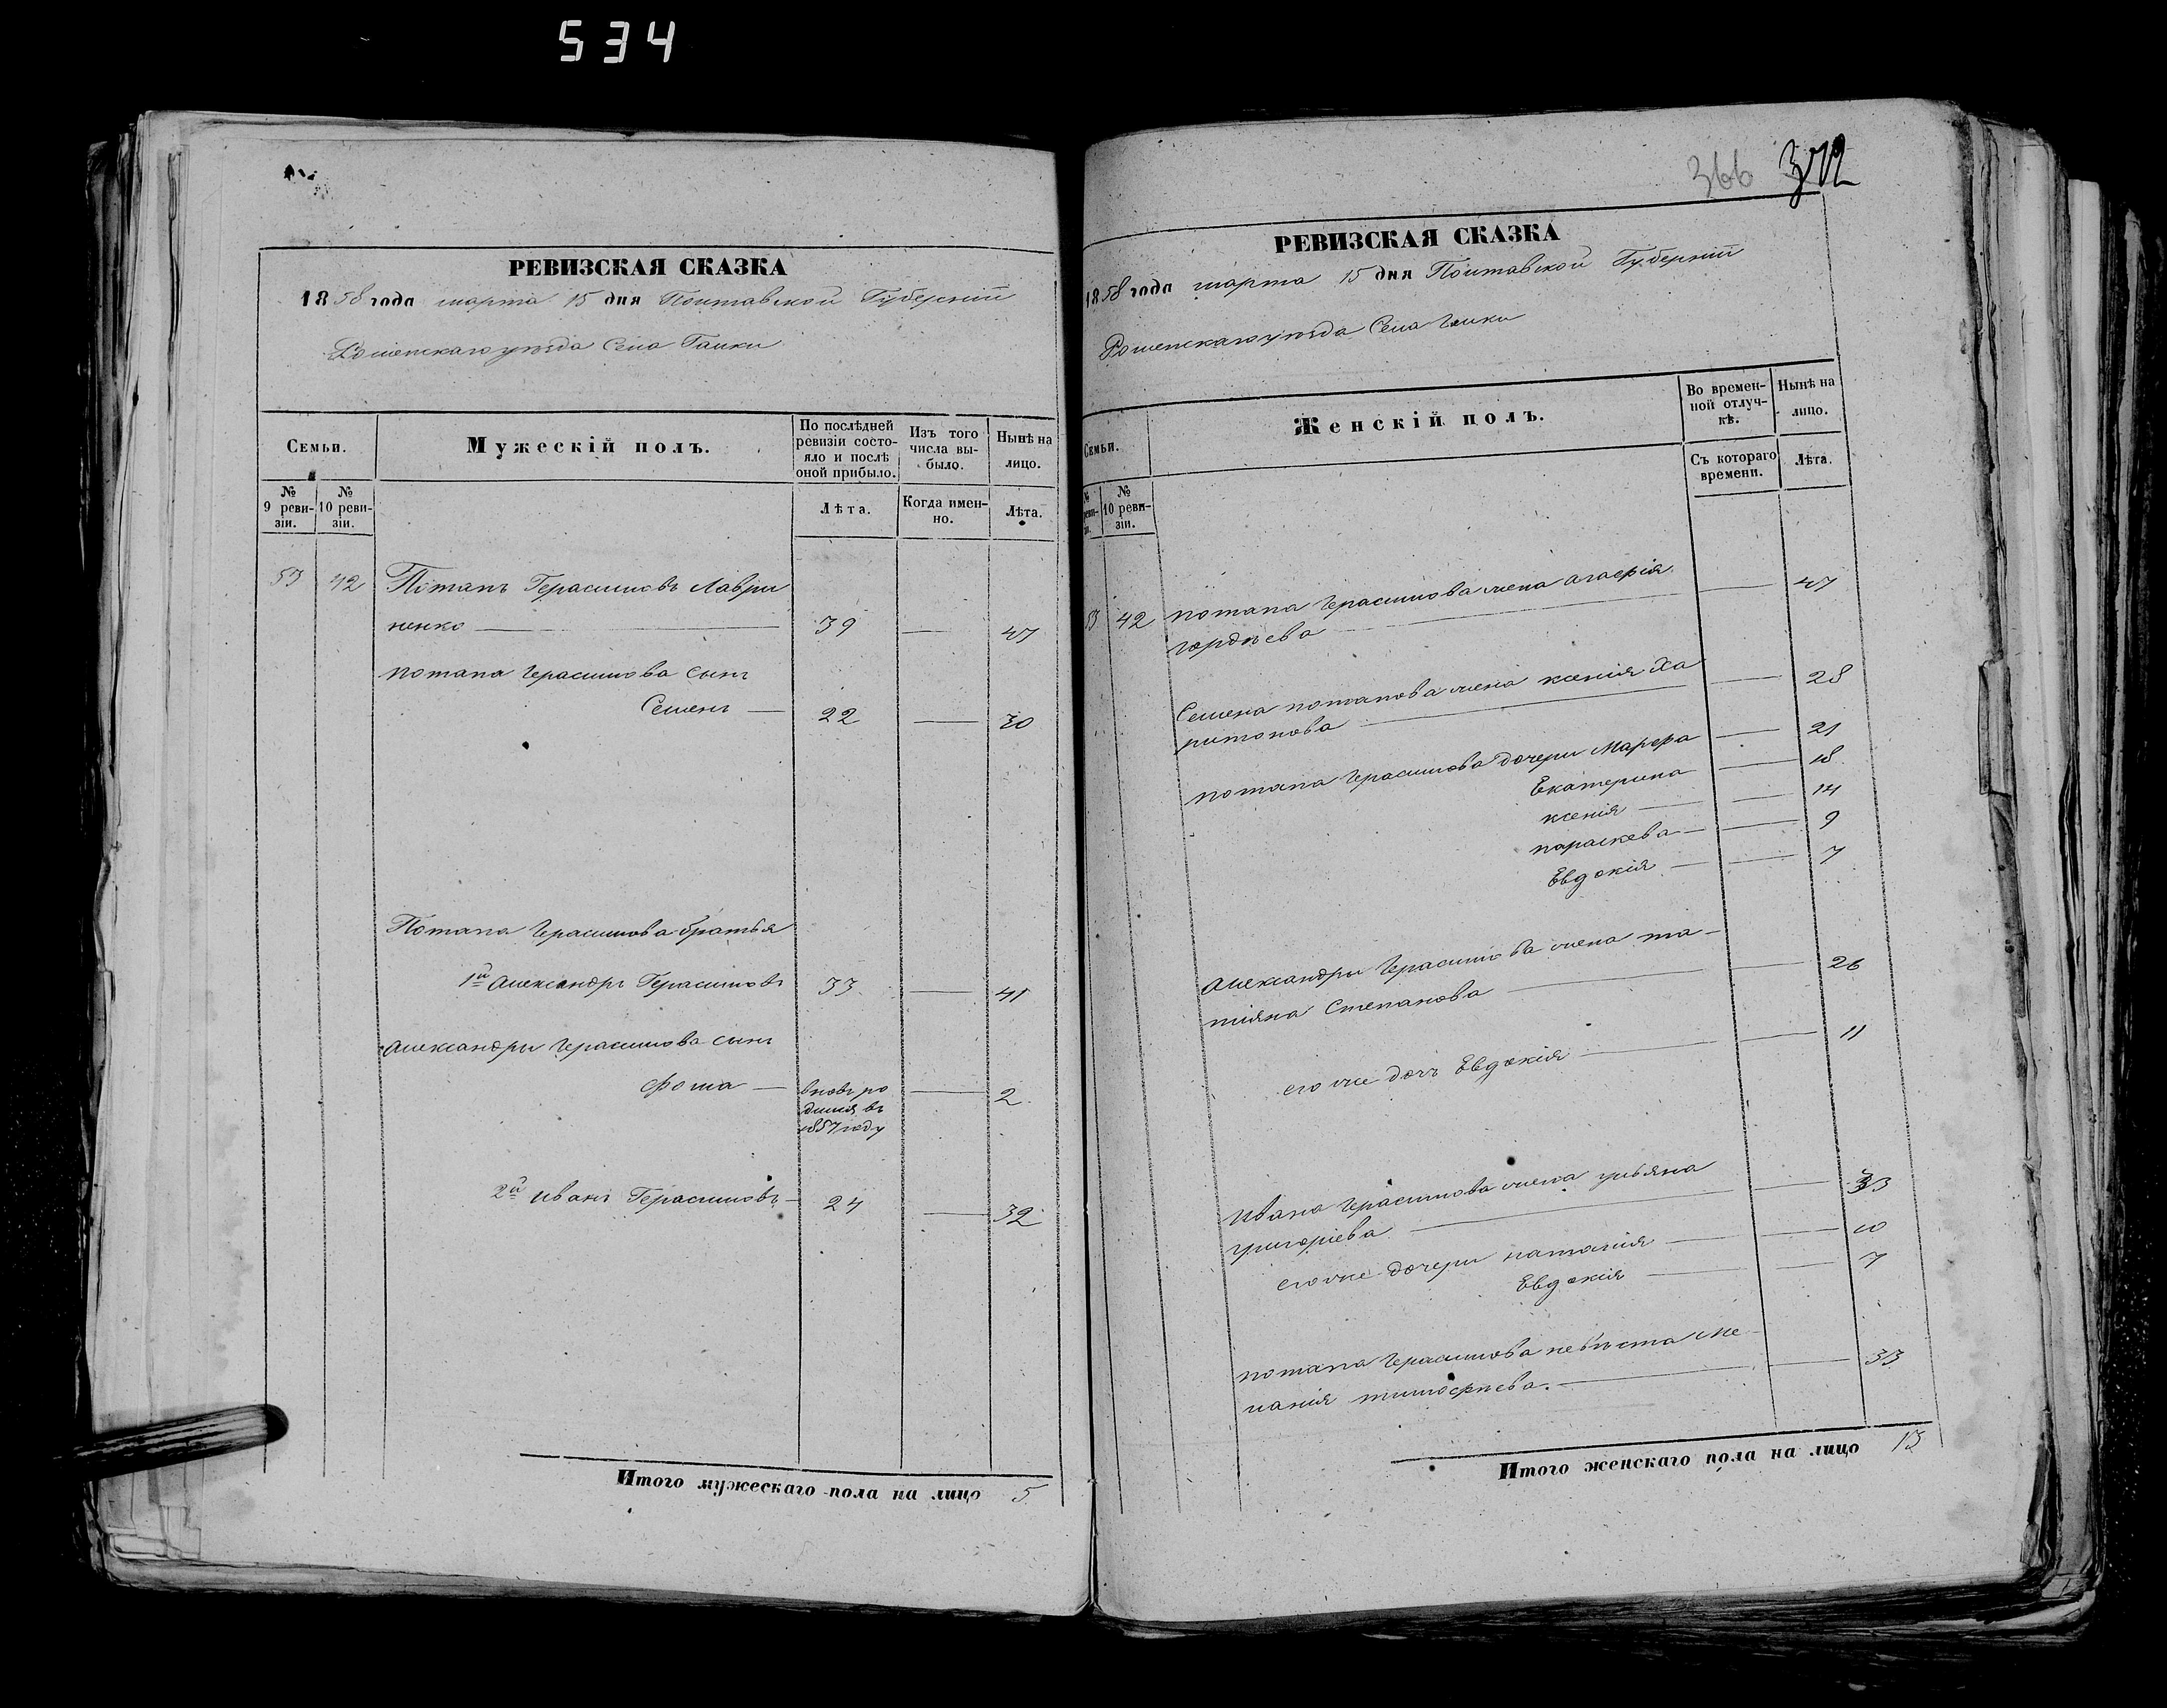 534
РЕВИЗСКАЯ СКАЗКА
1858 года марта 15 дня Полтавской Губерніи
Роменскаго уѣзда Села Галки
Семьи.
Мужескій полъ.
По послѣдней ревизіи состояло и послѣ оной прибыло.
Изъ того числа выбыло.
Нынѣ на лицо.
№ 9 ревизіи.
№ 10 ревизіи.
Лѣта.
Когда именно.
Лѣта.
53 42 Потапъ Герасимовъ Лаври
ненко — 39 — 47
потапа Герасимова сынъ
Семенъ — 22 — 30
Потапа Герасимова братья
1й Александръ Герасимовъ 33 — 41
Александры Герасимова сынъ
Фома — вновь ро 2
дился въ
1857 году
2й иванъ Герасимовъ — 24 — 32
Итого мужескаго пола на лицо 5
366 372
РЕВИЗСКАЯ СКАЗКА
1858 года марта 15 дня Полтавской Губерніи
Роменскаго уѣзда Села Галки
Семьи.
Женскій полъ.
Во временной отлучкѣ.
Нынѣ на лицо.
№ ревизіи.
№ 10 ревизіи.
Съ котораго времени.
Лѣта.
53 42 потапа Герасимова жена агафія — 47
гордѣева —
Семена потапова жена ксенія Ха — 28
ритонова —
потапа Герасимова дочери Марфа — 21
Екатерина — 18
ксенія — 14
параскева — 9
Евдокія — 7
Александры Герасимова жена та— — 26
тіяна Степанова —
его же дочь Евдокія — 11
Ивана Герасимова жена ульяна — 33
григоріева —
его же дочери наталія — 10
Евдокія — 7
потапа Герасимова невѣста ме— — 33
ланія тимофѣева. —
Итого женскаго пола на лицо 13